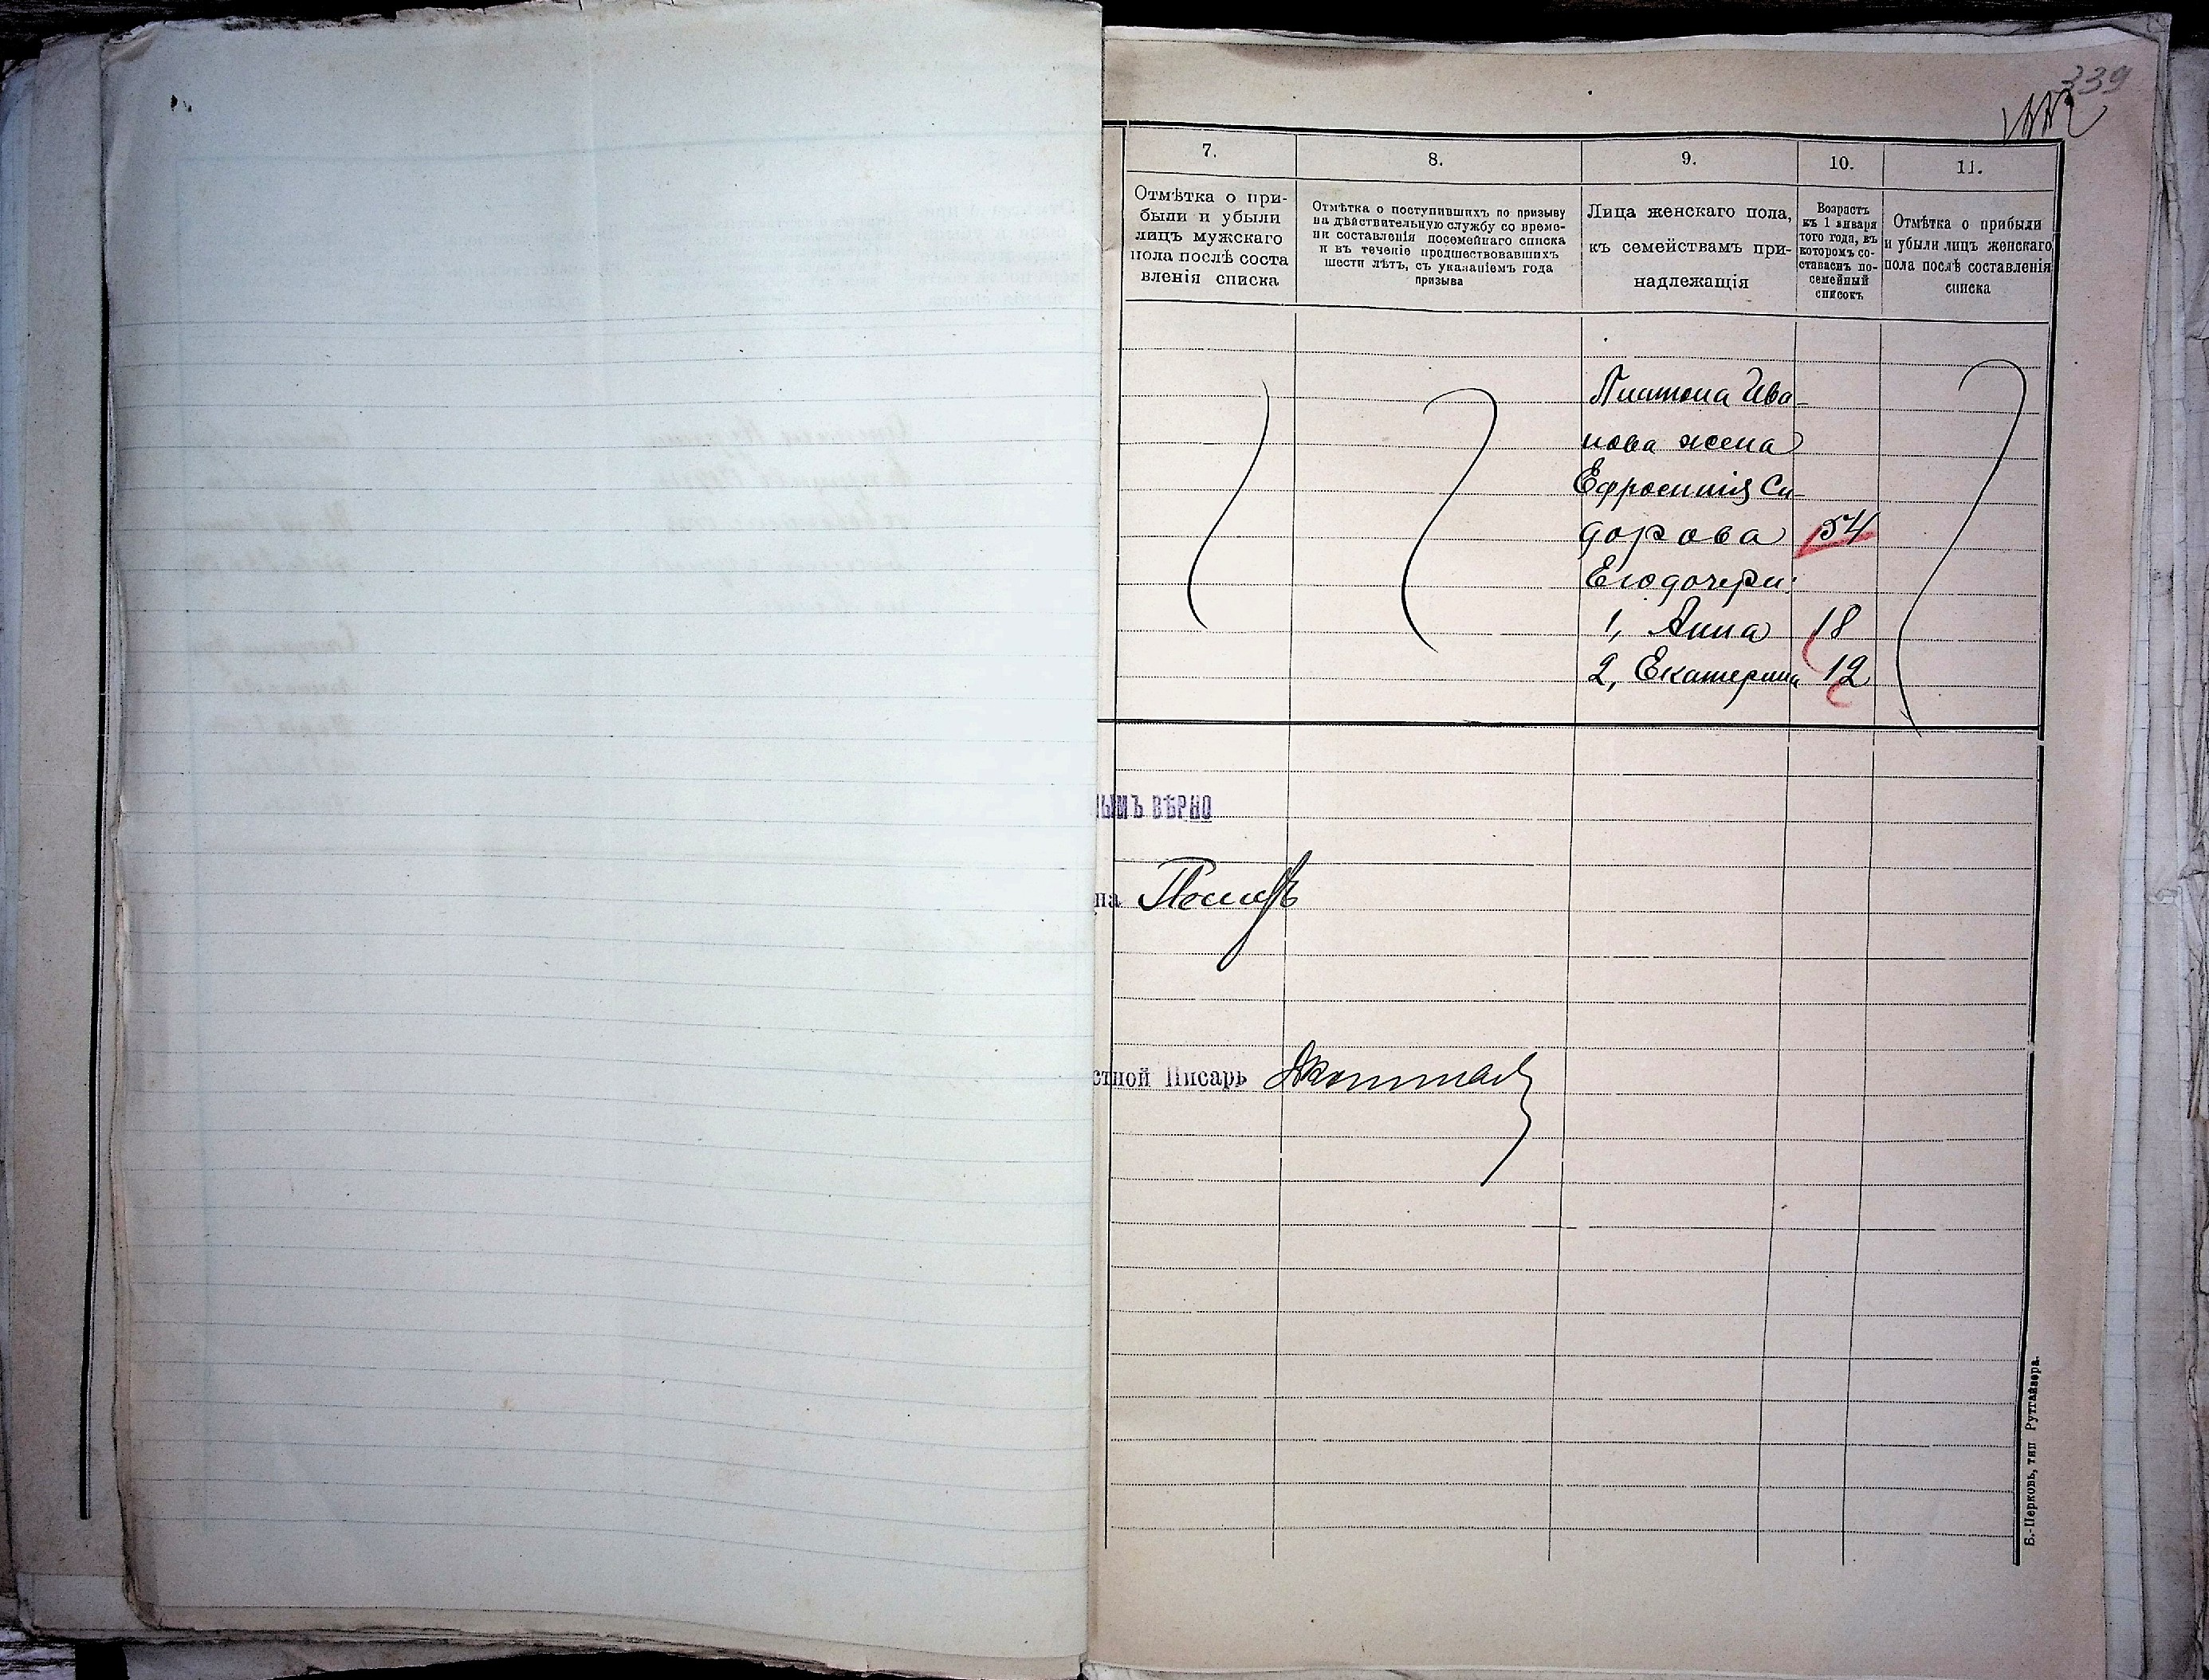 339
7.
8.
9.
10.
11.
Отмѣтка о при-
были и убыли
лицъ мужскаго
пола послѣ соста
вленія списка
Отмѣтка о поступившихъ по призыву
на дѣйствительную службу со време-
ни составленія посемейнаго списка
и въ теченіе предшествовавшихъ
шести лѣтъ, съ указаніемъ года
призыва
Лица женскаго пола,
къ семействамъ при-
надлежащія
Возрастъ
къ 1 января
того года, въ
которомъ со-
ставленъ по-
семейный
списокъ
Отмѣтка о прибыли
и убыли лицъ женскаго
пола послѣ составленія
списка
Платона Ива-
нова жена
Ефросинія Си-
дорова 54
Его дочери:
1, Анна 18
2, Екатерина 12
НЫМЪ ВѢРНО
на
стной Писарь
Б.-Церковь, тип Рутгайзера.